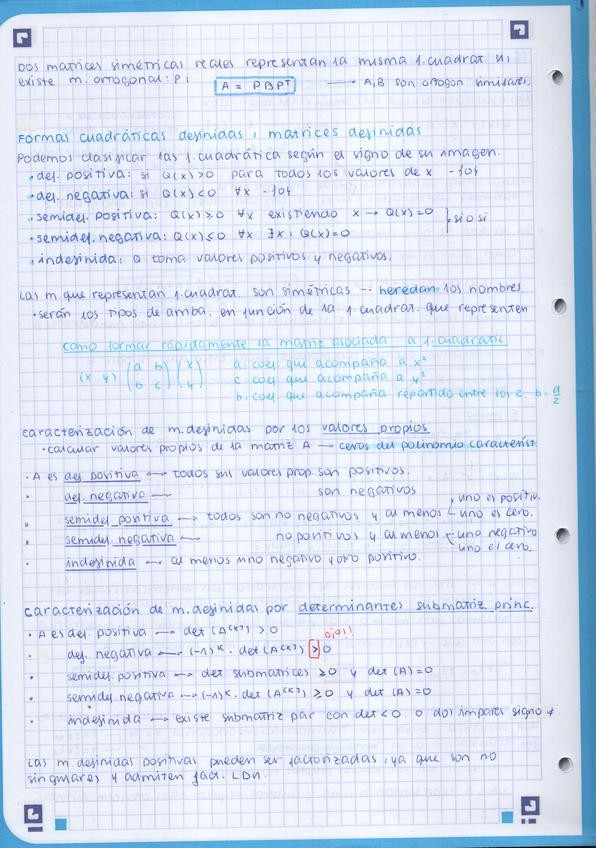 Dos matrices simétricas reales representan la misma f.cuadrat si
existe m. ortogonal: P:
A = PBPᵀ
→ A,B son ortogon similares.
Formas cuadráticas definidas y matrices definidas
Podemos clasificar las f.cuadrática según el signo de su imagen.
• def. positiva: si Q(x)>0 para todos los valores de x -{0}
• def. negativa: si Q(x)<0 ∀x -{0}
• semidef. positiva: Q(x)≥0 ∀x existiendo x → Q(x)=0
• semidef. negativa: Q(x)≤0 ∀x ∃x: Q(x)=0
} sí o sí
• indefinida: Q toma valores positivos y negativos.
Las m. que representan f.cuadrat. son simétricas → heredan los nombres
• serán los tipos de arriba. en función de la f.cuadrat. que representen
Como formar rápidamente la matriz asociada a f.cuadrátic
(x y) (a b) (x)
(b c) (y)
a: coef. que acompaña a x²
c: coef. que acompaña a y²
b: coef que acompaña repartido entre los 2 b = d/2
Caracterización de m.definidas por los valores propios
• calcular valores propios de la matriz A → ceros del polinomio característ
• A es def positiva ⟷ todos sus valores prop son positivos.
• def. negativa ⟷ son negativos
• semidef. positiva ⟷ todos son no negativos y al menos
uno es positiv.
uno es cero.
• semidef. negativa ⟷ no positivos y al menos
uno negativo
uno el cero.
• indefinida ⟷ al menos uno negativo y otro positivo.
Caracterización de m.definidas por determinantes submatriz princ.
• A es def. positiva ⟷ det (A⁽ᵏ⁾) > 0
ojo!!
• def. negativa ⟷ (-1)ᵏ. det (A⁽ᵏ⁾) > 0
• semidef. positiva ⟷ det submatrices ≥0 y det (A)=0
• semidef. negativa ⟷ (-1)ᵏ. det (A⁽ᵏ⁾) ≥0 y det (A)=0
• indefinida ⟷ existe submatriz par con det <0 o dos impares signo ≠
Las m definidas positivas pueden ser factorizadas, ya que son no
singulares y admiten fact. LDU.